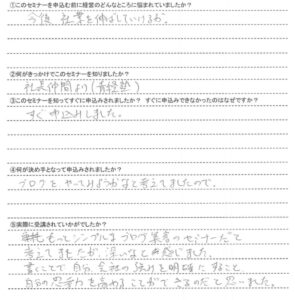 ①このセミナーを申込む前に経営のどんなところに悩まれていましたか？
今後 社業を伸ばしていけるか。
②何がきっかけでこのセミナーを知りましたか？
社長仲間より(青経塾)
③このセミナーを知ってすぐに申込みされましたか？ すぐに申込みできなかったのはなぜですか？
すぐ申込みしました。
④何が決め手となって申込みされましたか？
ブログをやってみようかなと考えてましたので。
⑤実際に受講されていかがでしたか？
もっとシンプルなブログ集客のセミナーだと
考えてましたが、深いなと感じました。
書くことで自分、会社の強みを明確にすること
自分の思考力を高めることができるのだと思いました。